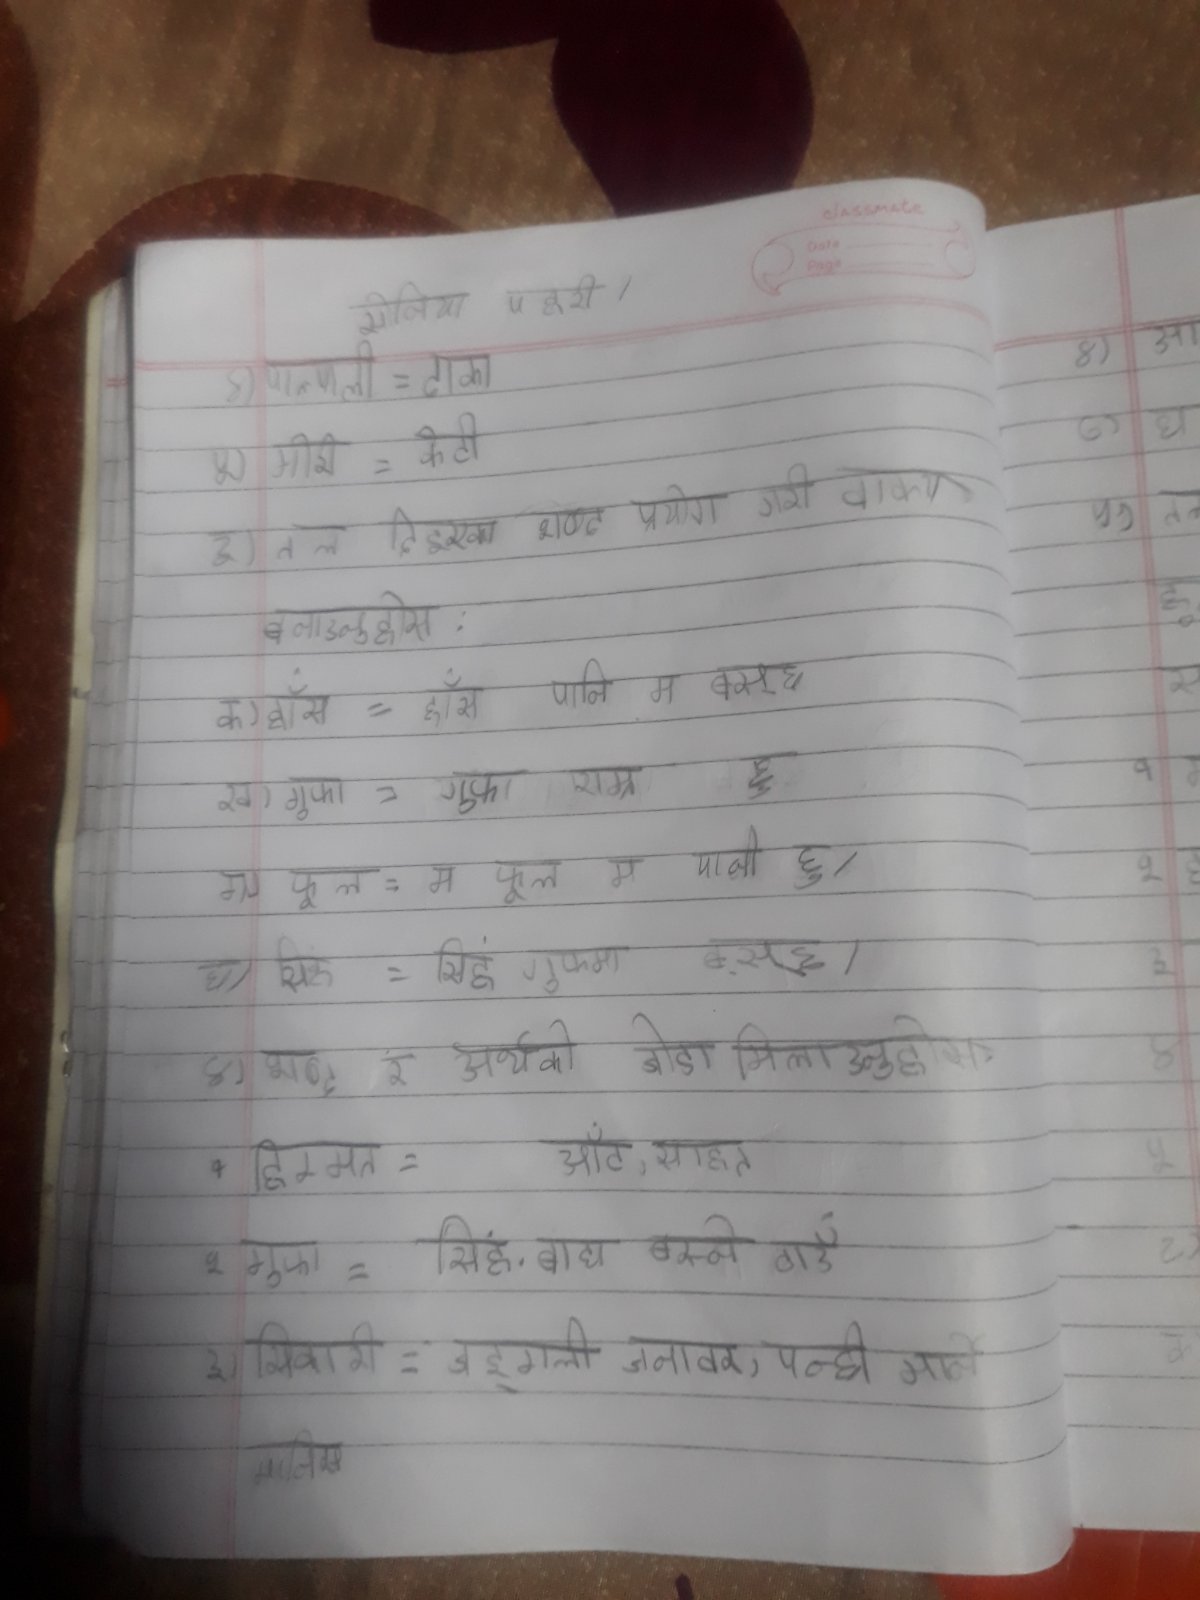 classmate
Date
Page
सोनिया पहरी।
४) = टीका
५) मीरी = केटी
३) तल दिइएका शब्द प्रयोग गरी वाक्य
बनाउनुहोस :
क) हाँस = हाँस पानि म बस्छ
ख) गुफा = गुफा राम्र छ
ग) फूल = म फूल म पानी छु।
घ) सिहं = सिहं गुफमा बस्छ।
४) शब्द र अर्थको जोडा मिलाउनुहोस
१ हिम्मत = आँट, साहत
२ गुफा = सिहं. बाघ बस्ने ठाउँ
३) सिकारी = जङ्गली जनावर, पन्छी मार्ने
मानिस
४) आ